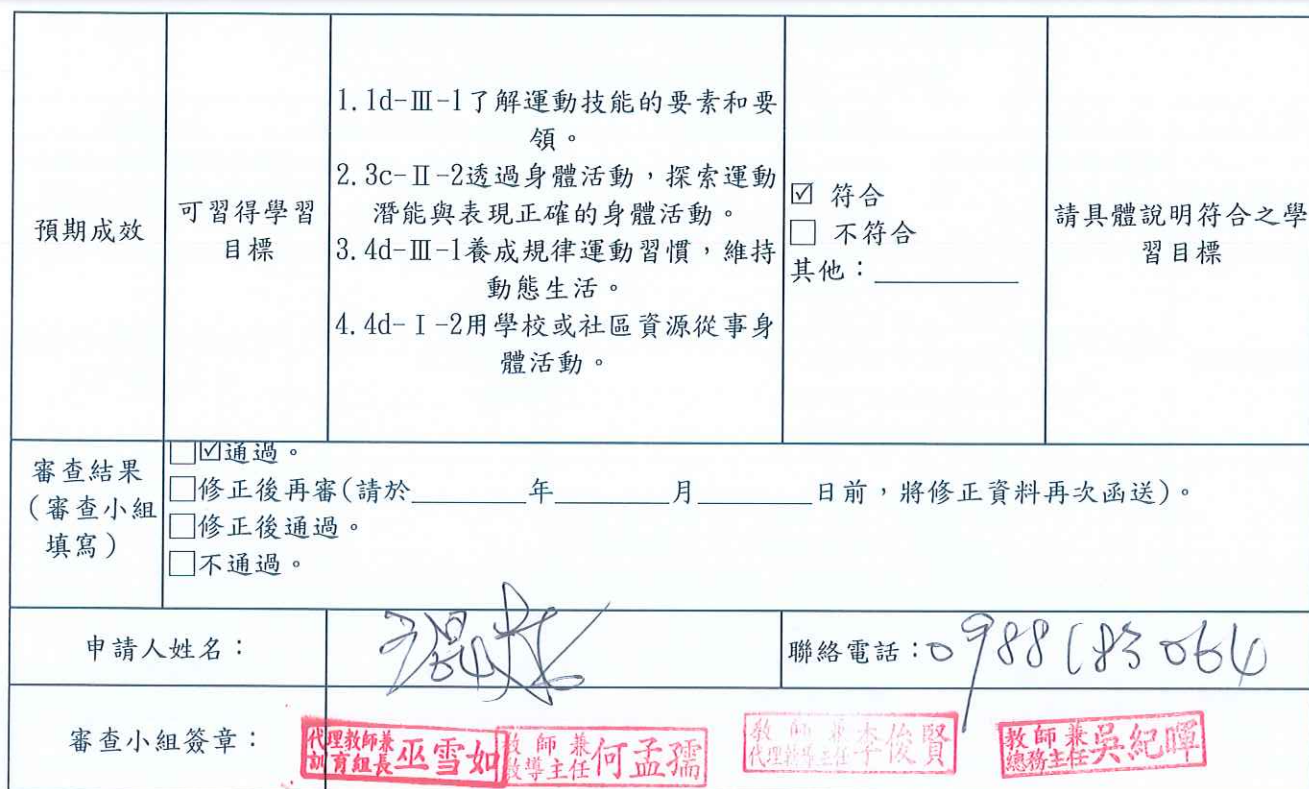 預期成效
可習得學習
目標
1.1d-Ⅲ-1了解運動技能的要素和要
領。
2.3c-Ⅱ-2透過身體活動，探索運動
潛能與表現正確的身體活動。
3.4d-Ⅲ-1養成規律運動習慣，維持
動態生活。
4.4d-Ⅰ-2用學校或社區資源從事身
體活動。
☑ 符合
□ 不符合
其他：________
請具體說明符合之學
習目標
審查結果
(審查小組
填寫)
□☑通過。
□修正後再審(請於________年________月________日前，將修正資料再次函送)。
□修正後通過。
□不通過。
申請人姓名：
聯絡電話：0988183064
審查小組簽章：
代理教師兼
訓育組長 巫雪如
教師兼
教導主任 何孟孺
教師兼
代理教導主任 李俊賢
教師兼
總務主任 吳紀暉